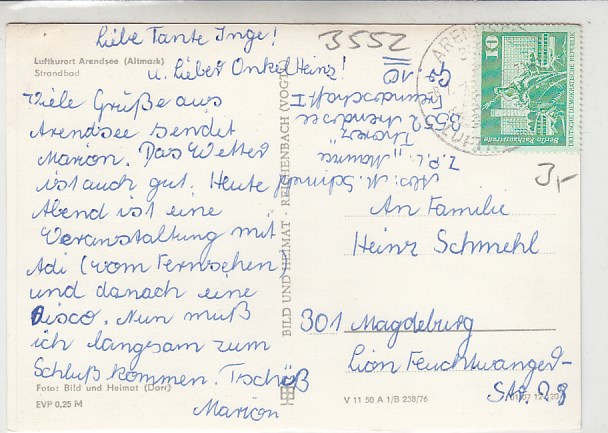 Liebe Tante Inge!
u. Lieber Onkel Heinz!
Luftkurort Arendsee (Altmark)
Strandbad
Viele Grüße aus
Arendsee sendet
Marion. Das Wetter
ist auch gut. Heute
Abend ist eine
Veranstaltung mit
Adi (vom Fernsehen)
und danach eine
Disco. Nun muß
ich langsam zum
Schluß kommen. Tschüß
Marion
Foto: Bild und Heimat (Dorr)
EVP 0,25 M
BILD UND HEIMAT · REICHENBACH (VOGTL)
3552
Abs: M. Schimpf
Z.P.L. "Maurice
Thorez"
3552 Arendsee
Freundschaft I
Gr. 10
ARENDSEE
10
DEUTSCHE DEMOKRATISCHE REPUBLIK
Berlin-Rathausstraße
3,-
An Familie
Heinz Schmehl
301 Magdeburg
Lion Feuchtwanger-
Str. 28
V 11 50 A 1/B 238/76
01 07 12 120